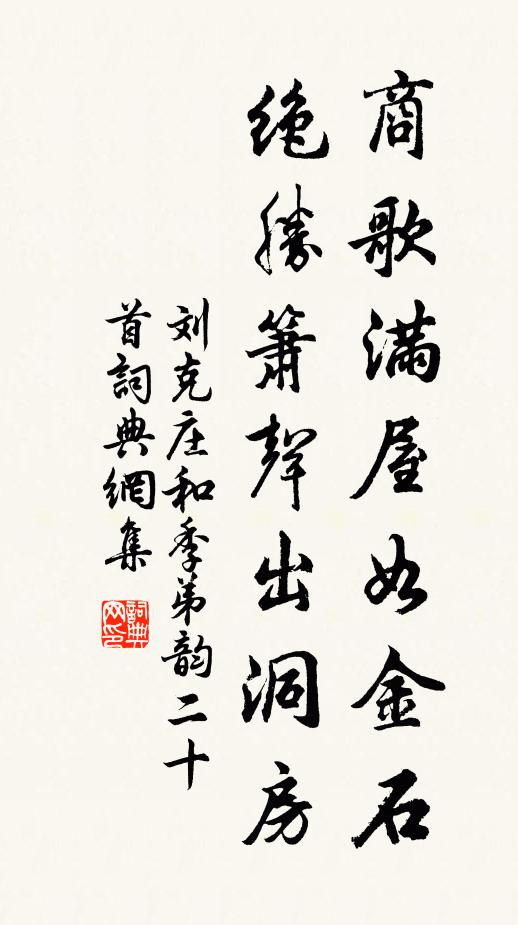 商歌滿屋如金石
绝勝簫聲出洞房
刘克庄和季弟韵二十
首詞典網集
詞典网印